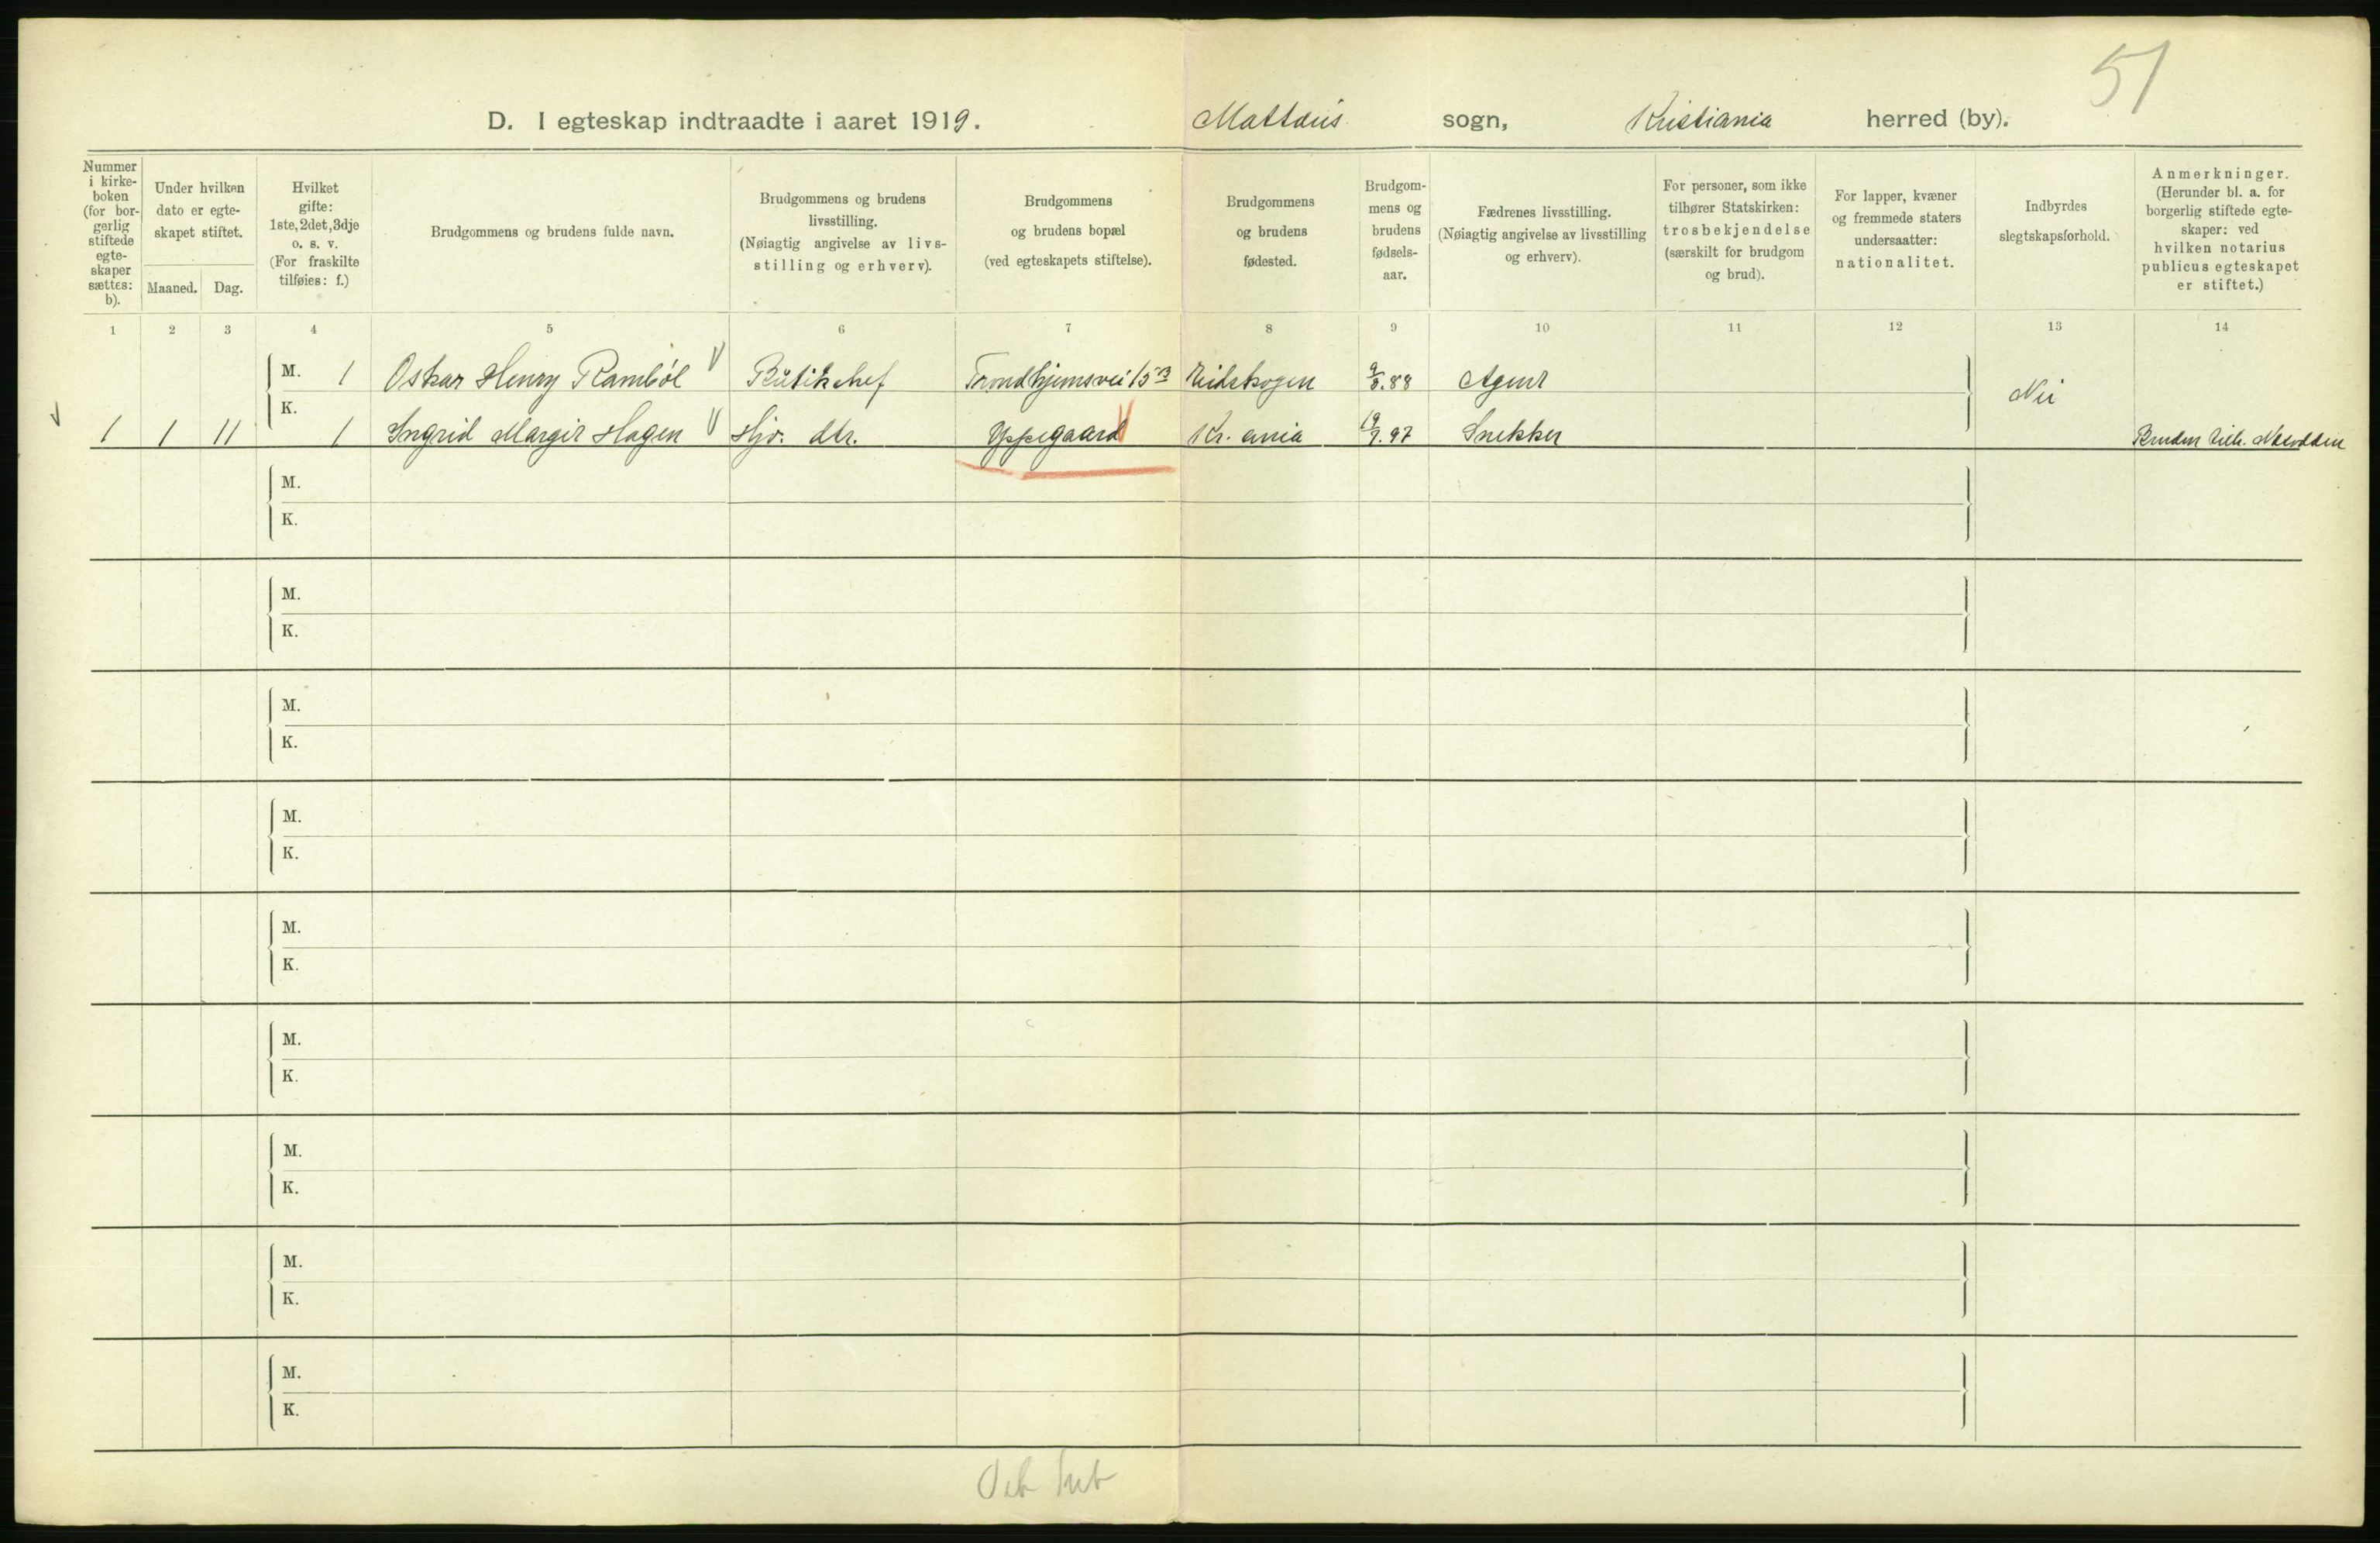 51
D. I egteskap indtraadte i aaret 1919.
Mattæus sogn, Kristiania herred (by).
Nummer
i kirke-
boken
(for bor-
gerlig
stiftede
egte-
skaper
sættes:
b).
Under hvilken
dato er egte-
skapet stiftet.
Maaned. Dag.
Hvilket
gifte:
1ste, 2det, 3dje
o. s. v.
(For fraskilte
tilføies: f.)
Brudgommens og brudens fulde navn.
Brudgommens og brudens
livsstilling.
(Nøiagtig angivelse av livs-
stilling og erhverv).
Brudgommens
og brudens bopæl
(ved egteskapets stiftelse).
Brudgommens
og brudens
fødested.
Brudgom-
mens og
brudens
fødsels-
aar.
Fædrenes livsstilling.
(Nøiagtig angivelse av livsstilling
og erhverv).
For personer, som ikke
tilhører Statskirken:
trosbekjendelse
(særskilt for brudgom
og brud).
For lapper, kvæner
og fremmede staters
undersaatter:
nationalitet.
Indbyrdes
slegtskapsforhold.
Anmerkninger.
(Herunder bl. a. for
borgerlig stiftede egte-
skaper: ved
hvilken notarius
publicus egteskapet
er stiftet.)
1 2 3 4 5 6 7 8 9 10 11 12 13 14
M. 1 Oskar Henry Ramböl Butikchef Trondhjemsvei 15 B Eidskogen 9/8.88 Agent
Nei
K. 1 1 11 1 Ingrid Margit Hagen Hjv. dtr. Oppegaard Kr.ania 19/9.97 Snekker Bruden tilh. Nesodden
M.
K.
M.
K.
M.
K.
M.
K.
M.
K.
M.
K.
M.
K.
M.
K.
M.
K.